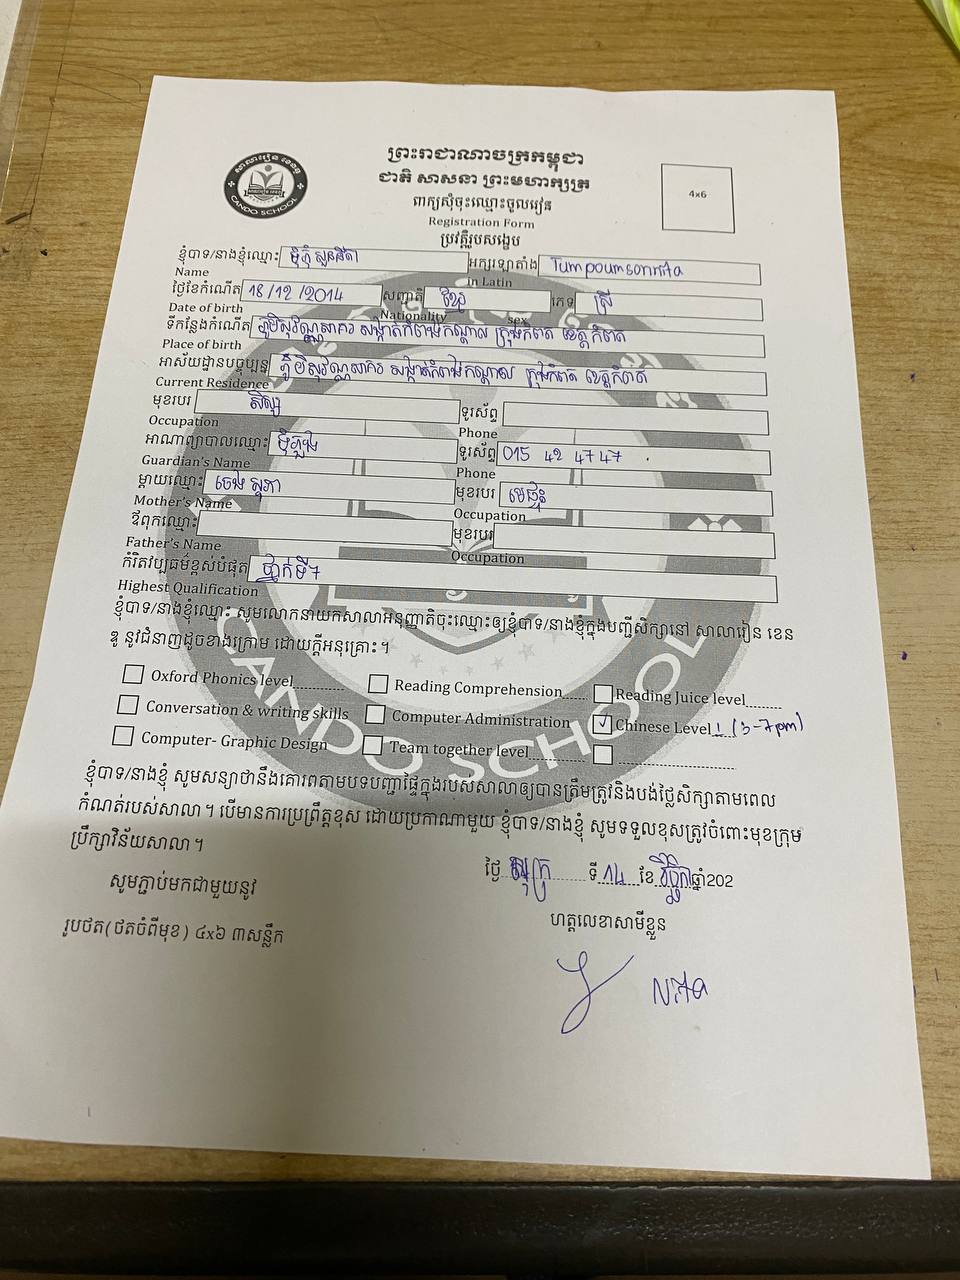 ព្រះរាជាណាចក្រកម្ពុជា
ជាតិ សាសនា ព្រះមហាក្សត្រ
ពាក្យសុំចុះឈ្មោះចូលរៀន
Registration Form
ប្រវត្តិរូបសង្ខេប
4x6
CANDO SCHOOL
ខ្ញុំបាទ/នាងខ្ញុំឈ្មោះ អក្សរឡាតាំង Tumpoumsonnita
Name in Latin
ថ្ងៃខែកំណើត 18/12/2014 សញ្ជាតិ ខ្មែរ ភេទ ស្រី
Date of birth Nationality sex
ទីកន្លែងកំណើត ភូមិសុវណ្ណសាគរ សង្កាត់កំពង់កណ្ដាល ក្រុងកំពត ខេត្តកំពត
Place of birth
អាស័យដ្ឋានបច្ចុប្បន្ន ភូមិសុវណ្ណសាគរ សង្កាត់កំពង់កណ្ដាល ក្រុងកំពត ខេត្តកំពត
Current Residence
មុខរបរ សិស្ស ទូរស័ព្ទ
Occupation Phone
អាណាព្យាបាលឈ្មោះ ទូរស័ព្ទ 015 42 47 47
Guardian's Name Phone
ម្ដាយឈ្មោះ ចេង សុភា មុខរបរ មេផ្ទះ
Mother's Name Occupation
ឪពុកឈ្មោះ មុខរបរ
Father's Name Occupation
កំរិតវប្បធម៌ខ្ពស់បំផុត ថ្នាក់ទី7
Highest Qualification
ខ្ញុំបាទ/នាងខ្ញុំឈ្មោះ សូមលោកនាយកសាលាអនុញ្ញាតិចុះឈ្មោះឲ្យខ្ញុំបាទ/នាងខ្ញុំក្នុងបញ្ជីសិក្សានៅ សាលារៀន ខេន
ឌូ នូវជំនាញដូចខាងក្រោម ដោយក្ដីអនុគ្រោះ។
Oxford Phonics level Reading Comprehension Reading Juice level
Conversation & writing skills Computer Administration ✓ Chinese Level 1 (5-7pm)
Computer- Graphic Design Team together level
ខ្ញុំបាទ/នាងខ្ញុំ សូមសន្យាថានឹងគោរពតាមបទបញ្ជាផ្ទៃក្នុងរបស់សាលាឲ្យបានត្រឹមត្រូវនិងបង់ថ្លៃសិក្សាតាមពេល
កំណត់របស់សាលា។ បើមានការប្រព្រឹត្តខុស ដោយប្រកាណាមួយ ខ្ញុំបាទ/នាងខ្ញុំ សូមទទួលខុសត្រូវចំពោះមុខក្រុម
ប្រឹក្សាវិន័យសាលា។
ថ្ងៃ សុក្រ ទី 14 ខែ វិច្ឆិកា ឆ្នាំ202
សូមភ្ជាប់មកជាមួយនូវ
ហត្ថលេខាសាមីខ្លួន
រូបថត(ថតចំពីមុខ) ៤x៦ ៣សន្លឹក